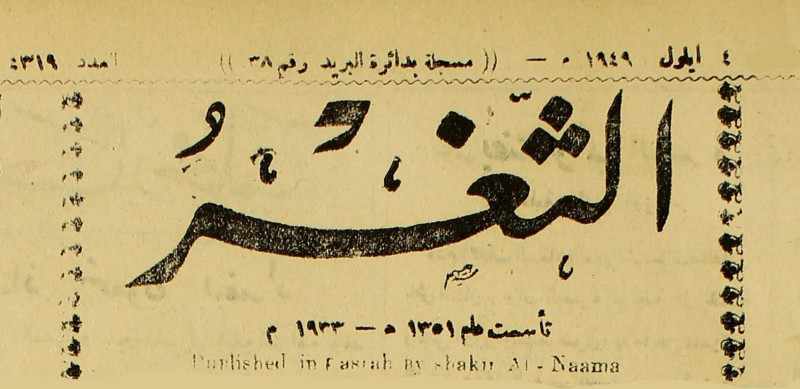 ٤ ايلول ١٩٤٩ ٠ — (( مسجلة بدائرة البريد رقم ٣٨ )) العدد ٤٣١٩:
الثّغر
تأسست عام ١٣٥١ ه — ١٩٣٣ م
Published in Basrah By Shakir Al - Naama